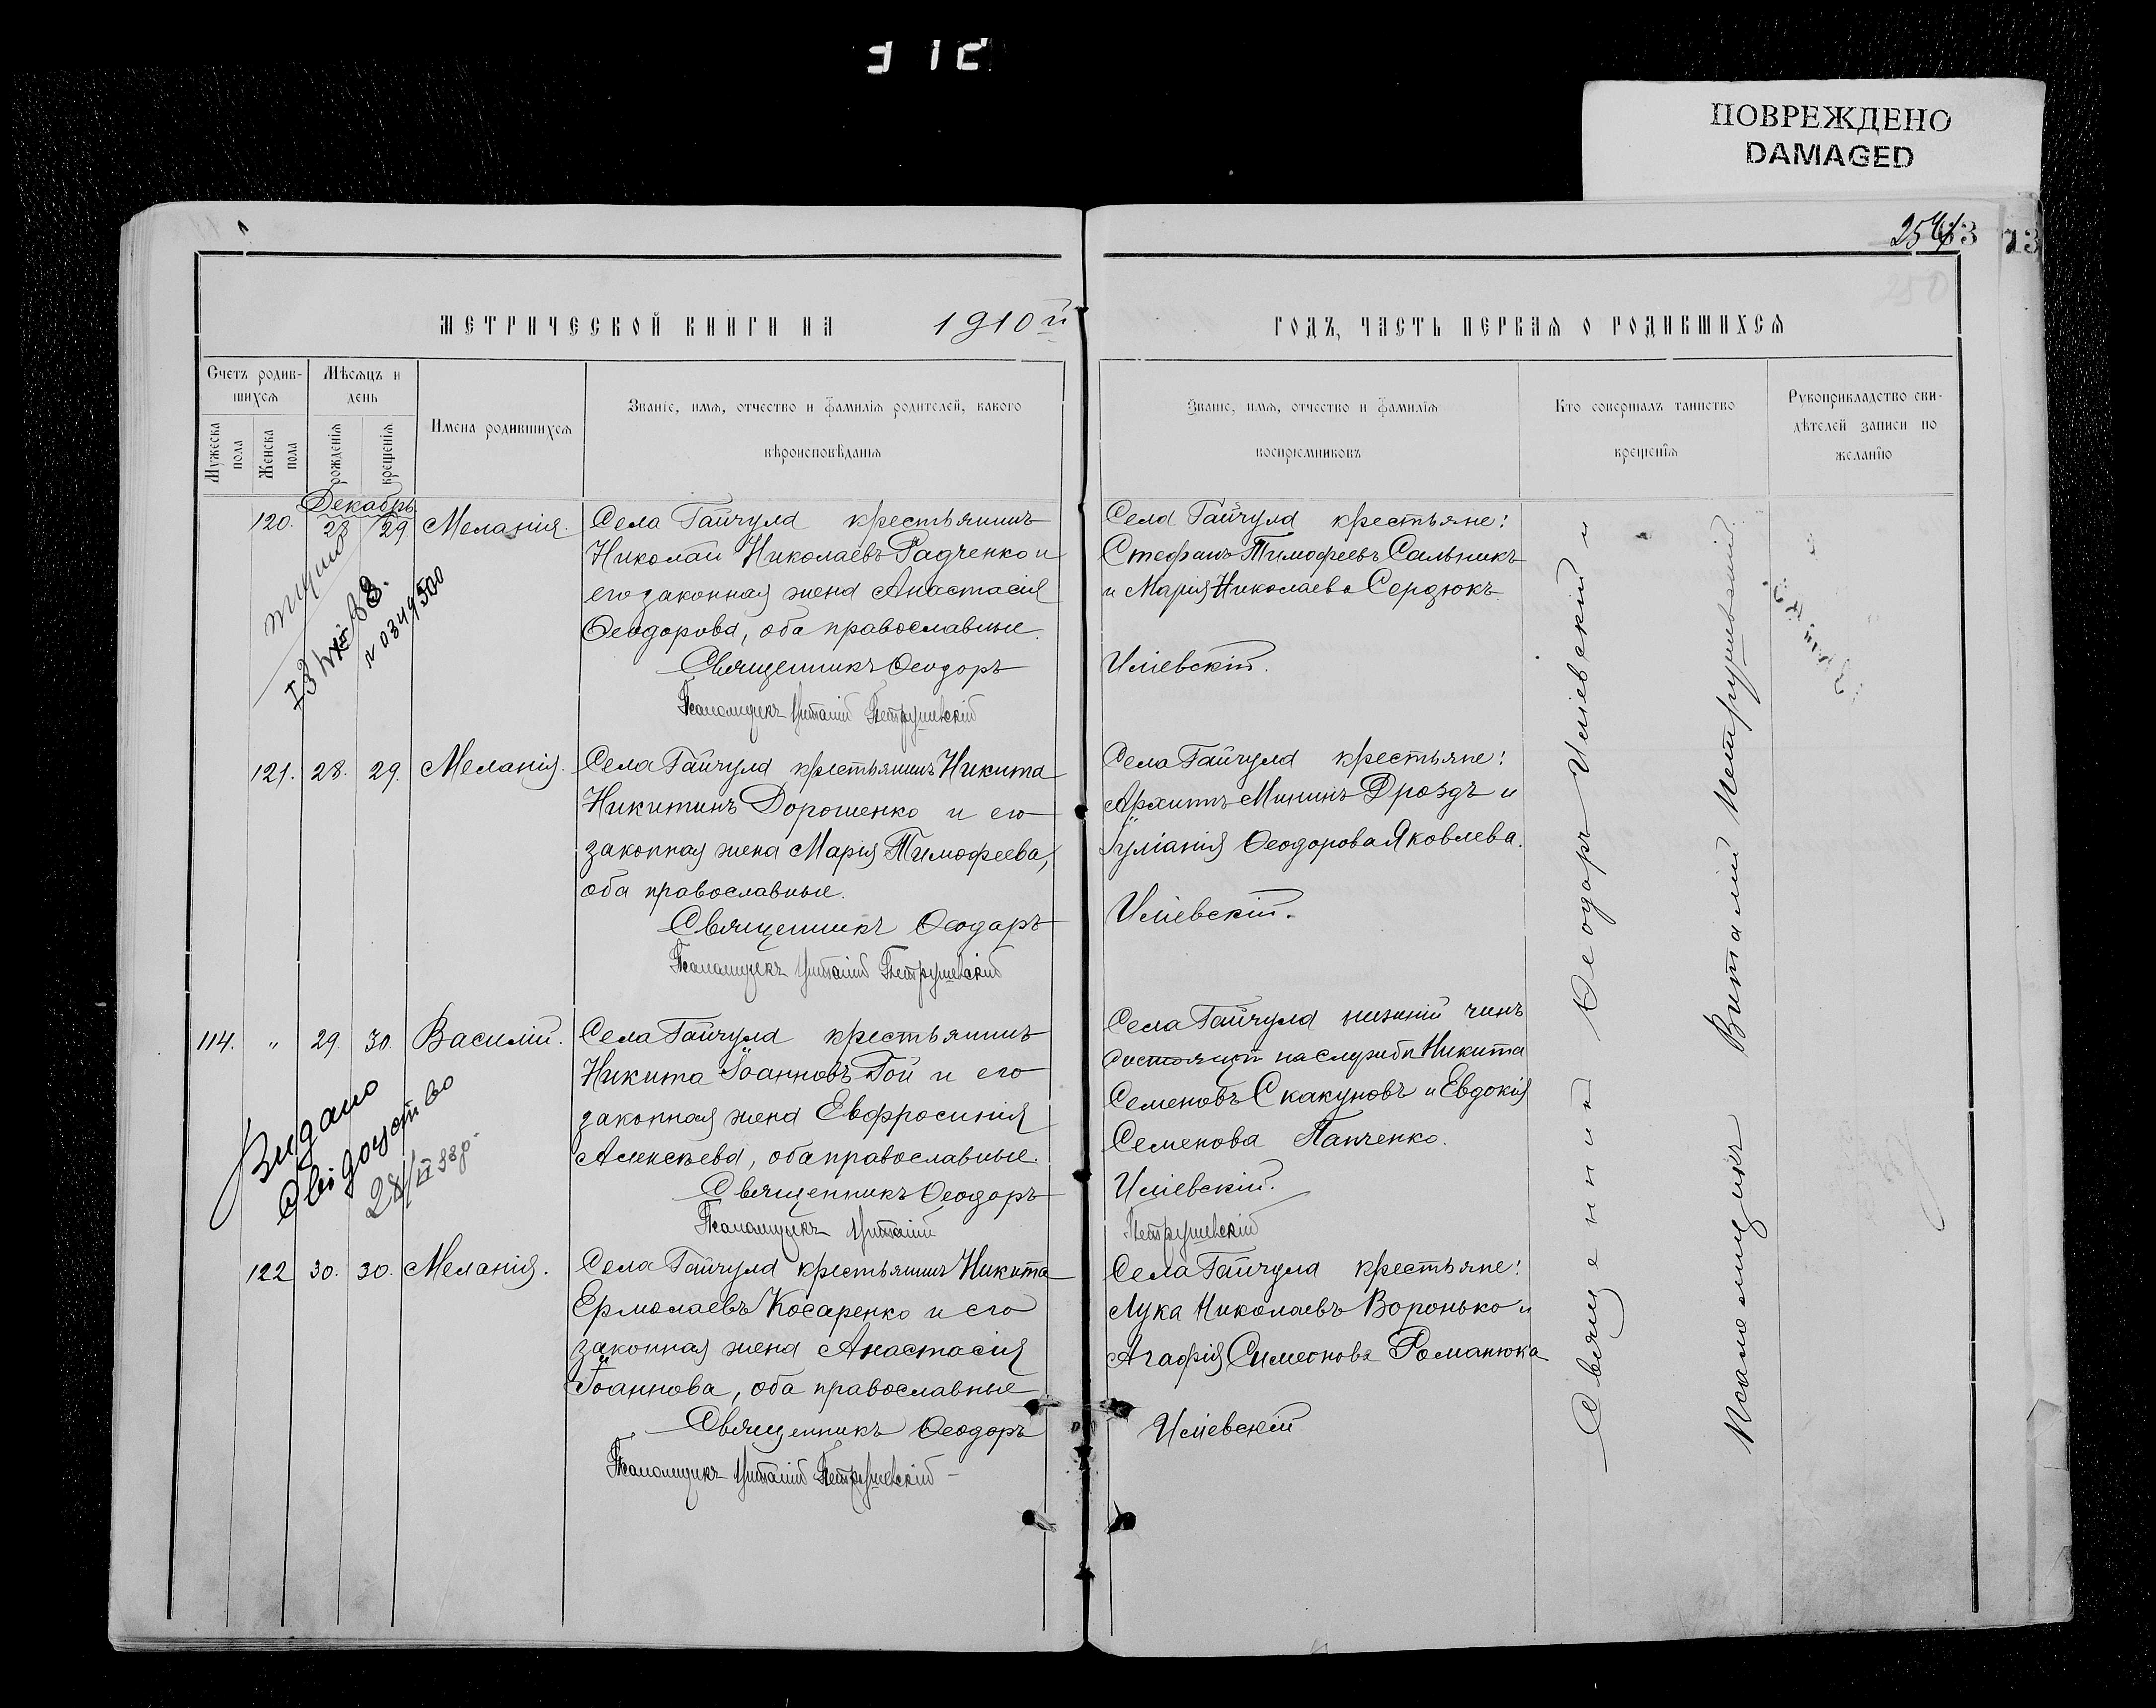 ПОВРЕЖДЕНО
DAMAGED
МЕТРИЧЕСКОЙ КНИГИ НА 1910й
ГОДЪ, ЧАСТЬ ПЕРВАЯ О РОДИВШИХСЯ
Счетъ родив-
шихся
Мужеска пола
Женска пола
Мѣсяцъ и
день
рожденія
крещенія
Имена родившихся
Званіе, имя, отчество и фамилія родителей, какого
вѣроисповѣданія
Званіе, имя, отчество и фамилія
воспріемниковъ
Кто совершалъ таинство
крещенія
Рукоприкладство сви-
дѣтелей записи по
желанію
Декабрь
120. 28 29 Меланія.
Села Гайчула крестьянинъ
Николай Николаевъ Радченко и
его законная жена Анастасія
Ѳеодорова, оба православные.
Священникъ Ѳеодоръ
Псаломщикъ Виталій Петрушевскій
Села Гайчула крестьяне:
Стефанъ Тимофеевъ Сальникъ
и Марія Николаева Сердюкъ
Иліевскій.
121. 28. 29. Меланія.
Села Гайчула крестьянинъ Никита
Никитинъ Дорошенко и его
законная жена Марія Тимофеева,
оба православные.
Священникъ Ѳеодоръ
Псаломщикъ Виталій Петрушевскій
Села Гайчула крестьяне:
Архипъ Мининъ Дроздъ и
Іуліанія Ѳеодорова Яковлева.
Иліевскій.
114. " 29. 30. Василій.
Видано
свідоцтво
Села Гайчула крестьянинъ
Никита Іоанновъ Гой и его
законная жена Евфросинія
Алексѣева, оба православные.
Священникъ Ѳеодоръ
Псаломщикъ Виталій
Села Гайчула нижній чинъ
состоящій на службѣ Никита
Семеновъ Скакуновъ и Евдокія
Семенова Панченко.
Иліевскій.
Петрушевскій
122 30. 30. Меланія.
Села Гайчула крестьянинъ Никита
Ермолаевъ Косаренко и его
законная жена Анастасія
Іоаннова, оба православные
Священникъ Ѳеодоръ
Псаломщикъ Виталій Петрушевскій
Села Гайчула крестьяне:
Лука Николаевъ Воронько и
Агафія Симеонова Романюка
Иліевскій
Священникъ Ѳеодоръ Иліевскій и
Псаломщикъ Виталій Петрушевскій